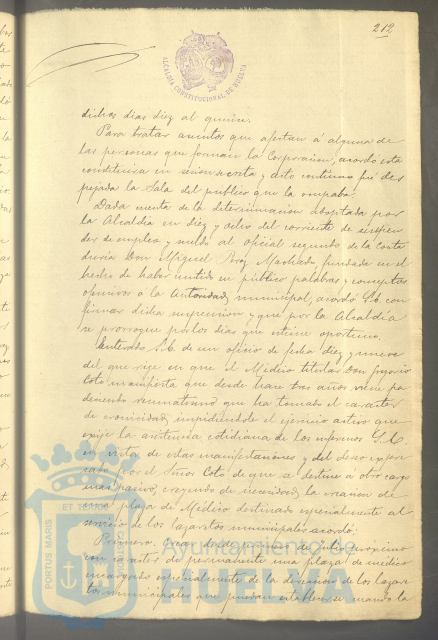 212
ALCALDIA CONSTITUCIONAL DE HUELVA
dichos dias diez al quince.
Para tratar asuntos que afectan á alguna de
las personas que forman la Corporacion, acordó esta
constituirse en sesion secreta y acto continuo fué des
pejada la Sala del público que la ocupaba.
Dada cuenta de la determinacion adoptada por
la Alcaldia en diez y ocho del corriente de suspen
der de empleo y sueldo al oficial segundo de la Conta
duria Don Miguel Machado, fundada en el
hecho de haber emitido en público palabras y conceptos
ofensivos á la Autoridad municipal, acordó S.E. con
firmar dicha suspension y que por la Alcaldía
se prorrogue por los dias que estime oportuno.
Enterado S.E. de un oficio de fecha diez y nueve
del que rige en que el Medico titular Don
Coto manifiesta que desde hace tres años viene pa
deciendo reumatismo que ha tomado el caracter
de cronicidad, impidiendole el ejercicio activo que
exije la asistencia cotidiana de los enfermos S.E.
en vista de estas manifestaciones y del deseo expre
sado por el Señor Coto de que se destine á otro cargo
mas pasivo, creyendo de necesidad la creacion de
una plaza de Médico destinado especialmente al
servicio de los Lazaretos municipales acordó:
Primero. Crear desde primero de Julio proximo
con caracter de permanente una plaza de medico
encargado especialmente de la direccion de los Lazare
tos municipales que puedan establecerse cuando la
ET TERRAE
PORTUS MARIS
CUSTODIA
Ayuntamiento de
HUELVA